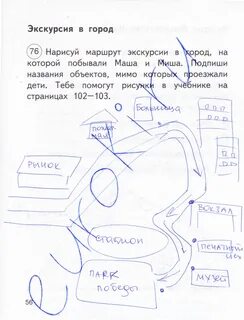 Экскурсия в город
76 Нарисуй маршрут экскурсии в город, на
которой побывали Маша и Миша. Подпиши
названия объектов, мимо которых проезжали
дети. Тебе помогут рисунки в учебнике на
страницах 102—103.
Больница
РЫНОК
ВОКЗАЛ
СТАДИОН
ПЕЧАТНЫЙ
ПАРК
ПОБЕДЫ
МУЗЕЙ
56